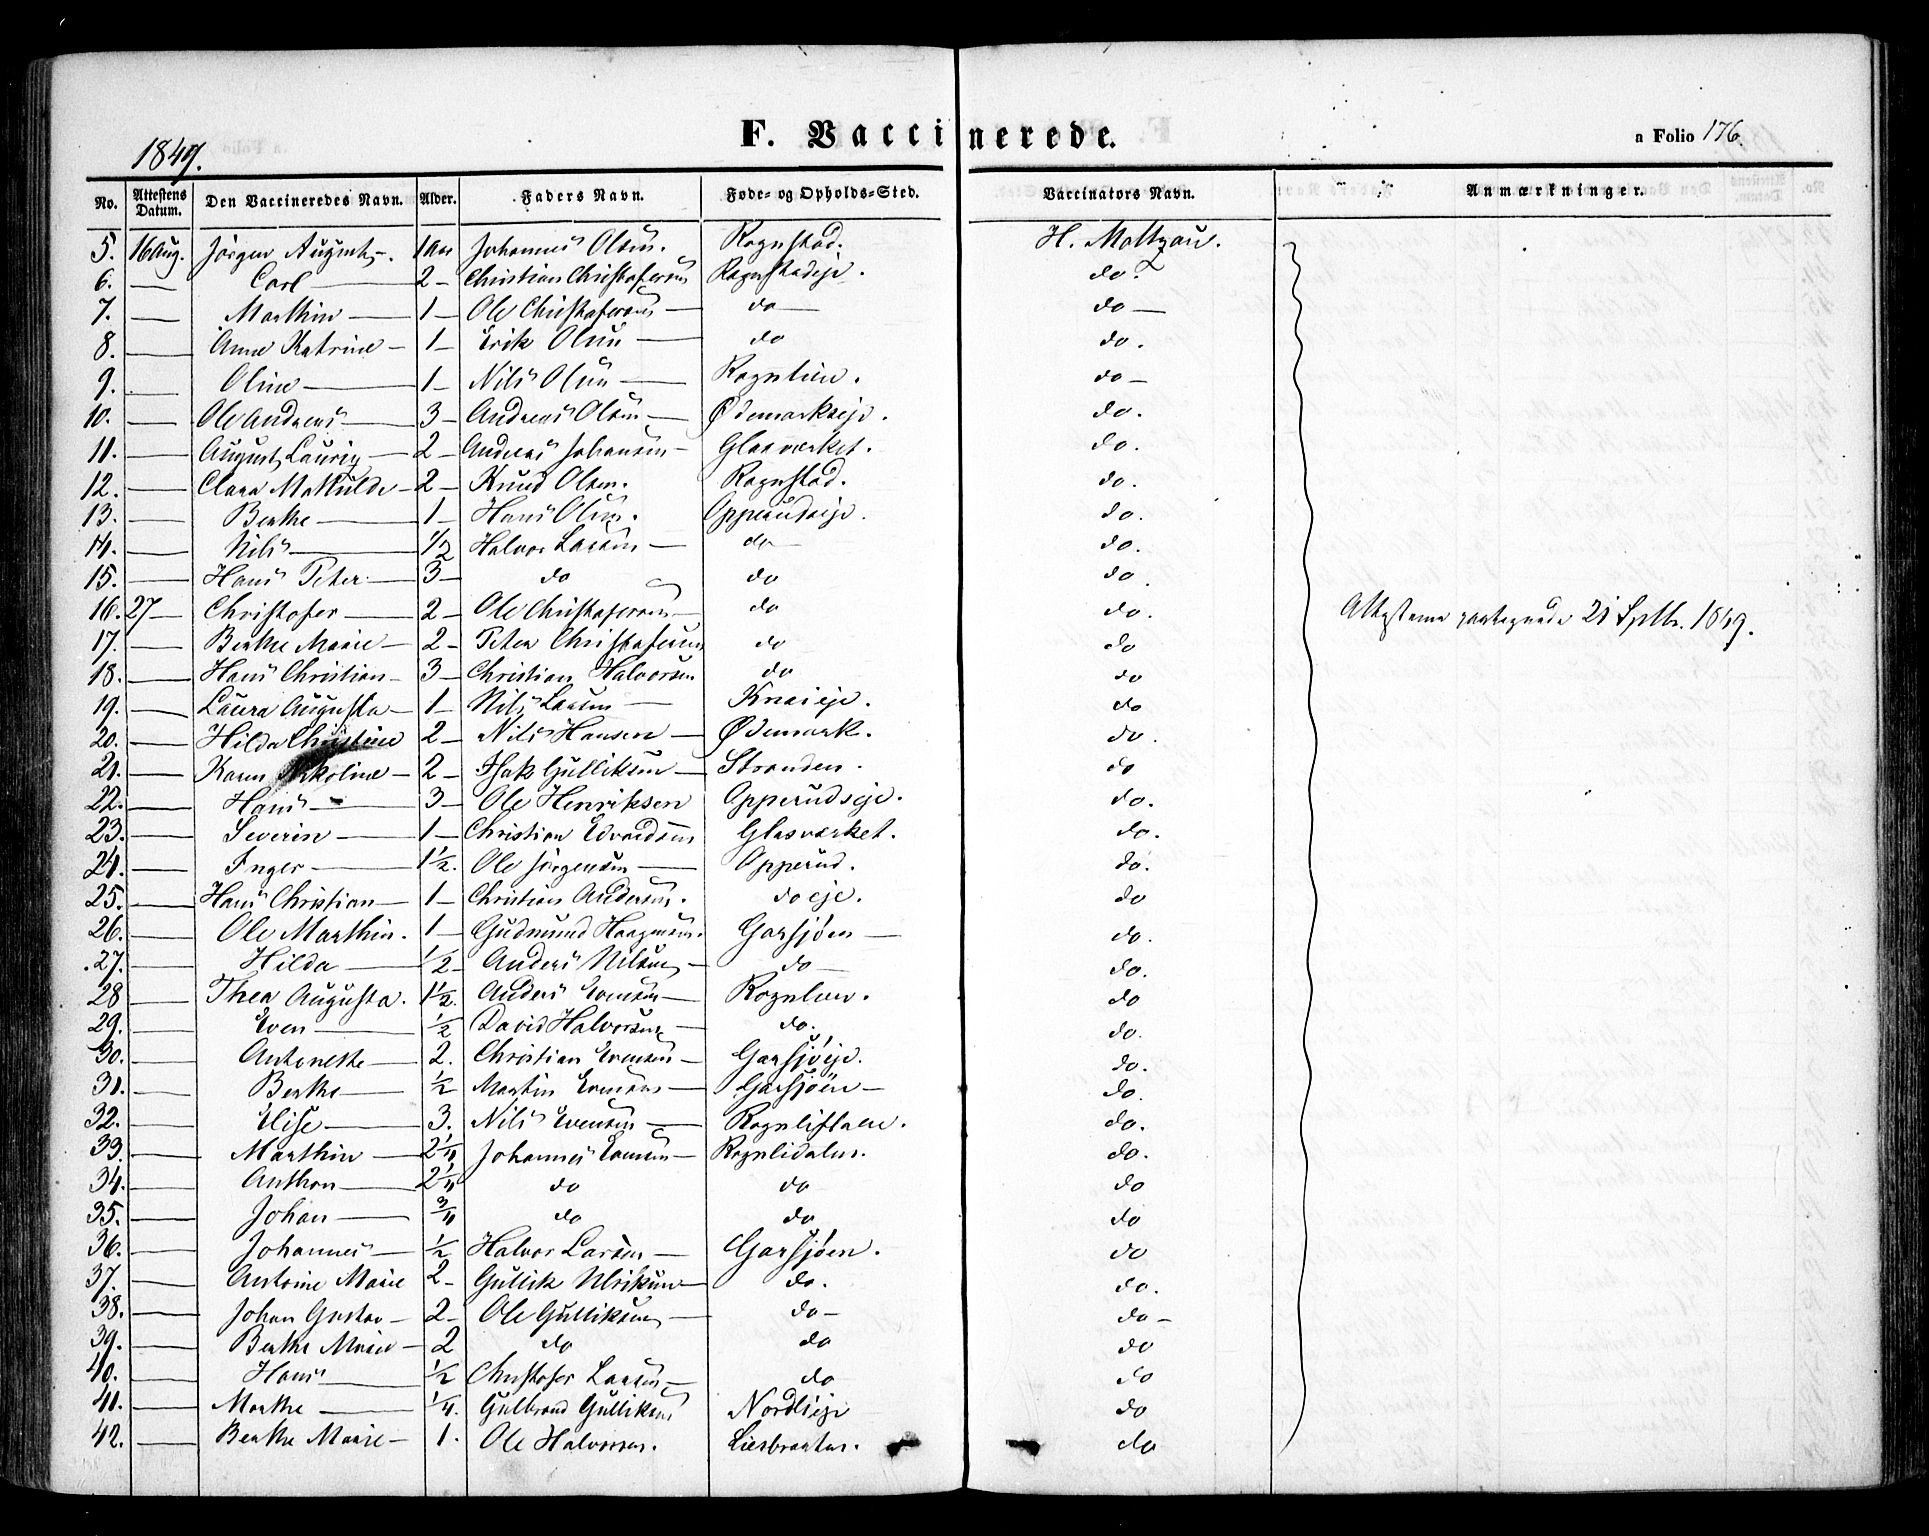 F. Vaccinerede.
a Folio 176.
1849.
No. Attestens Datum. Den Vaccineredes Navn. Alder. Faders Navn. Føde- og Opholds-Sted. Vaccinators Navn. Anmærkninger.
5. 16 Aug. Jørgen August 1 Aar Johannes Olsen. Rognstad. H. Moltzau.
6. — Carl — 2 — Christian Christofersen Rognstadeje. do.
7. — Marthin — 1 — Ole Christofersen — do — do —
8. — Anne Katrine — 1 — Erik Olsen — do do.
9. — Oline — 1 — Nils Olsen — Rognlien. do —
10. — Ole Andreas — 3 — Andreas Olsen — Ødemarkseje. do.
11. — August Lauritz — 2 — Andreas Johansen — Glasværket. do.
12. — Clara Mathilde — 2 — Knud Olsen. Rognstad. do.
13. — Berthe — 1 — Hans Olsen. Opperudseje. do.
14. — Nils — 1/2 Halvor Larsen — do — do.
15. — Hans Peter — 3 — do do do.
16. 27 — Christofer — 2 — Ole Christofersen — do do. Attesterne 21 Septbr. 1849.
17. — Berthe Marie — 2 — Peter Christofersen do do
18. — Hans Christian — 3 — Christian Halvorsen do do
19. — Laura Augusta — 1 — Nils Larsen — Knaieje. do
20. — Hilda Christine 2 — Nils Hansen — Ødemark. do.
21. — Karen Nikoline — 2 — Isak Gulliksen — Stranden. do
22. — Hans — 3 — Ole Henriksen Opperudseje. do.
23. — Severin — 1 — Christian Edvardsen Glasværket. do.
24. — Inger — 1 1/2. Ole Jørgensen — Opperud. do.
25. — Hans Christian — 1 — Christian Andersen. do eje. do
26. — Ole Marthin. 1 — Gudmund Haagensen. Garsjøen — do.
27. — Hilda — 1/2 — Anders Nilsen — do — do.
28 — Thea Augusta. 1 1/2. Anders Evensen — Rognlien. do
29. — Even — 1/2 David Halvorsen — do. do.
30. — Antonette — 2. Christian Evensen — Garsjøeje. do.
31. — Berthe — 1/2 Martin Evensen — Garsjøen — do.
32. — Elise — 3. Nils Evensen — do.
33. — Marthin — 2 1/4 Johannes Evensen — Rognlidalen. do.
34. — Anthon — 2 1/4 do do do
35. — Johan — 3/4 do do do
36. — Johannes — 1/2 Halvor Larsen — Garsjøen. do
37. — Antoine Marie 2 — Gullik Ulriksen — do. do.
38. — Johan Gustav — 2 — Ole Gulliksen — do — do —
39. — Berthe Marie — 2 do do do
40. — Hans — 1/2 Christofer Larsen — do do
41. — Marthe — 1/4. Gulbrand Gulliksen Nordlieje do
42. — Berthe Marie — 1. Ole Halvorsen. Liesbraaten. do